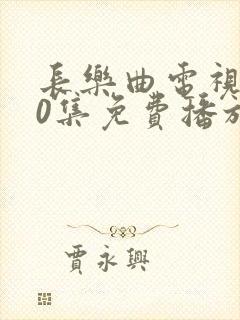 長樂曲電視
0集免費播放
賈永興